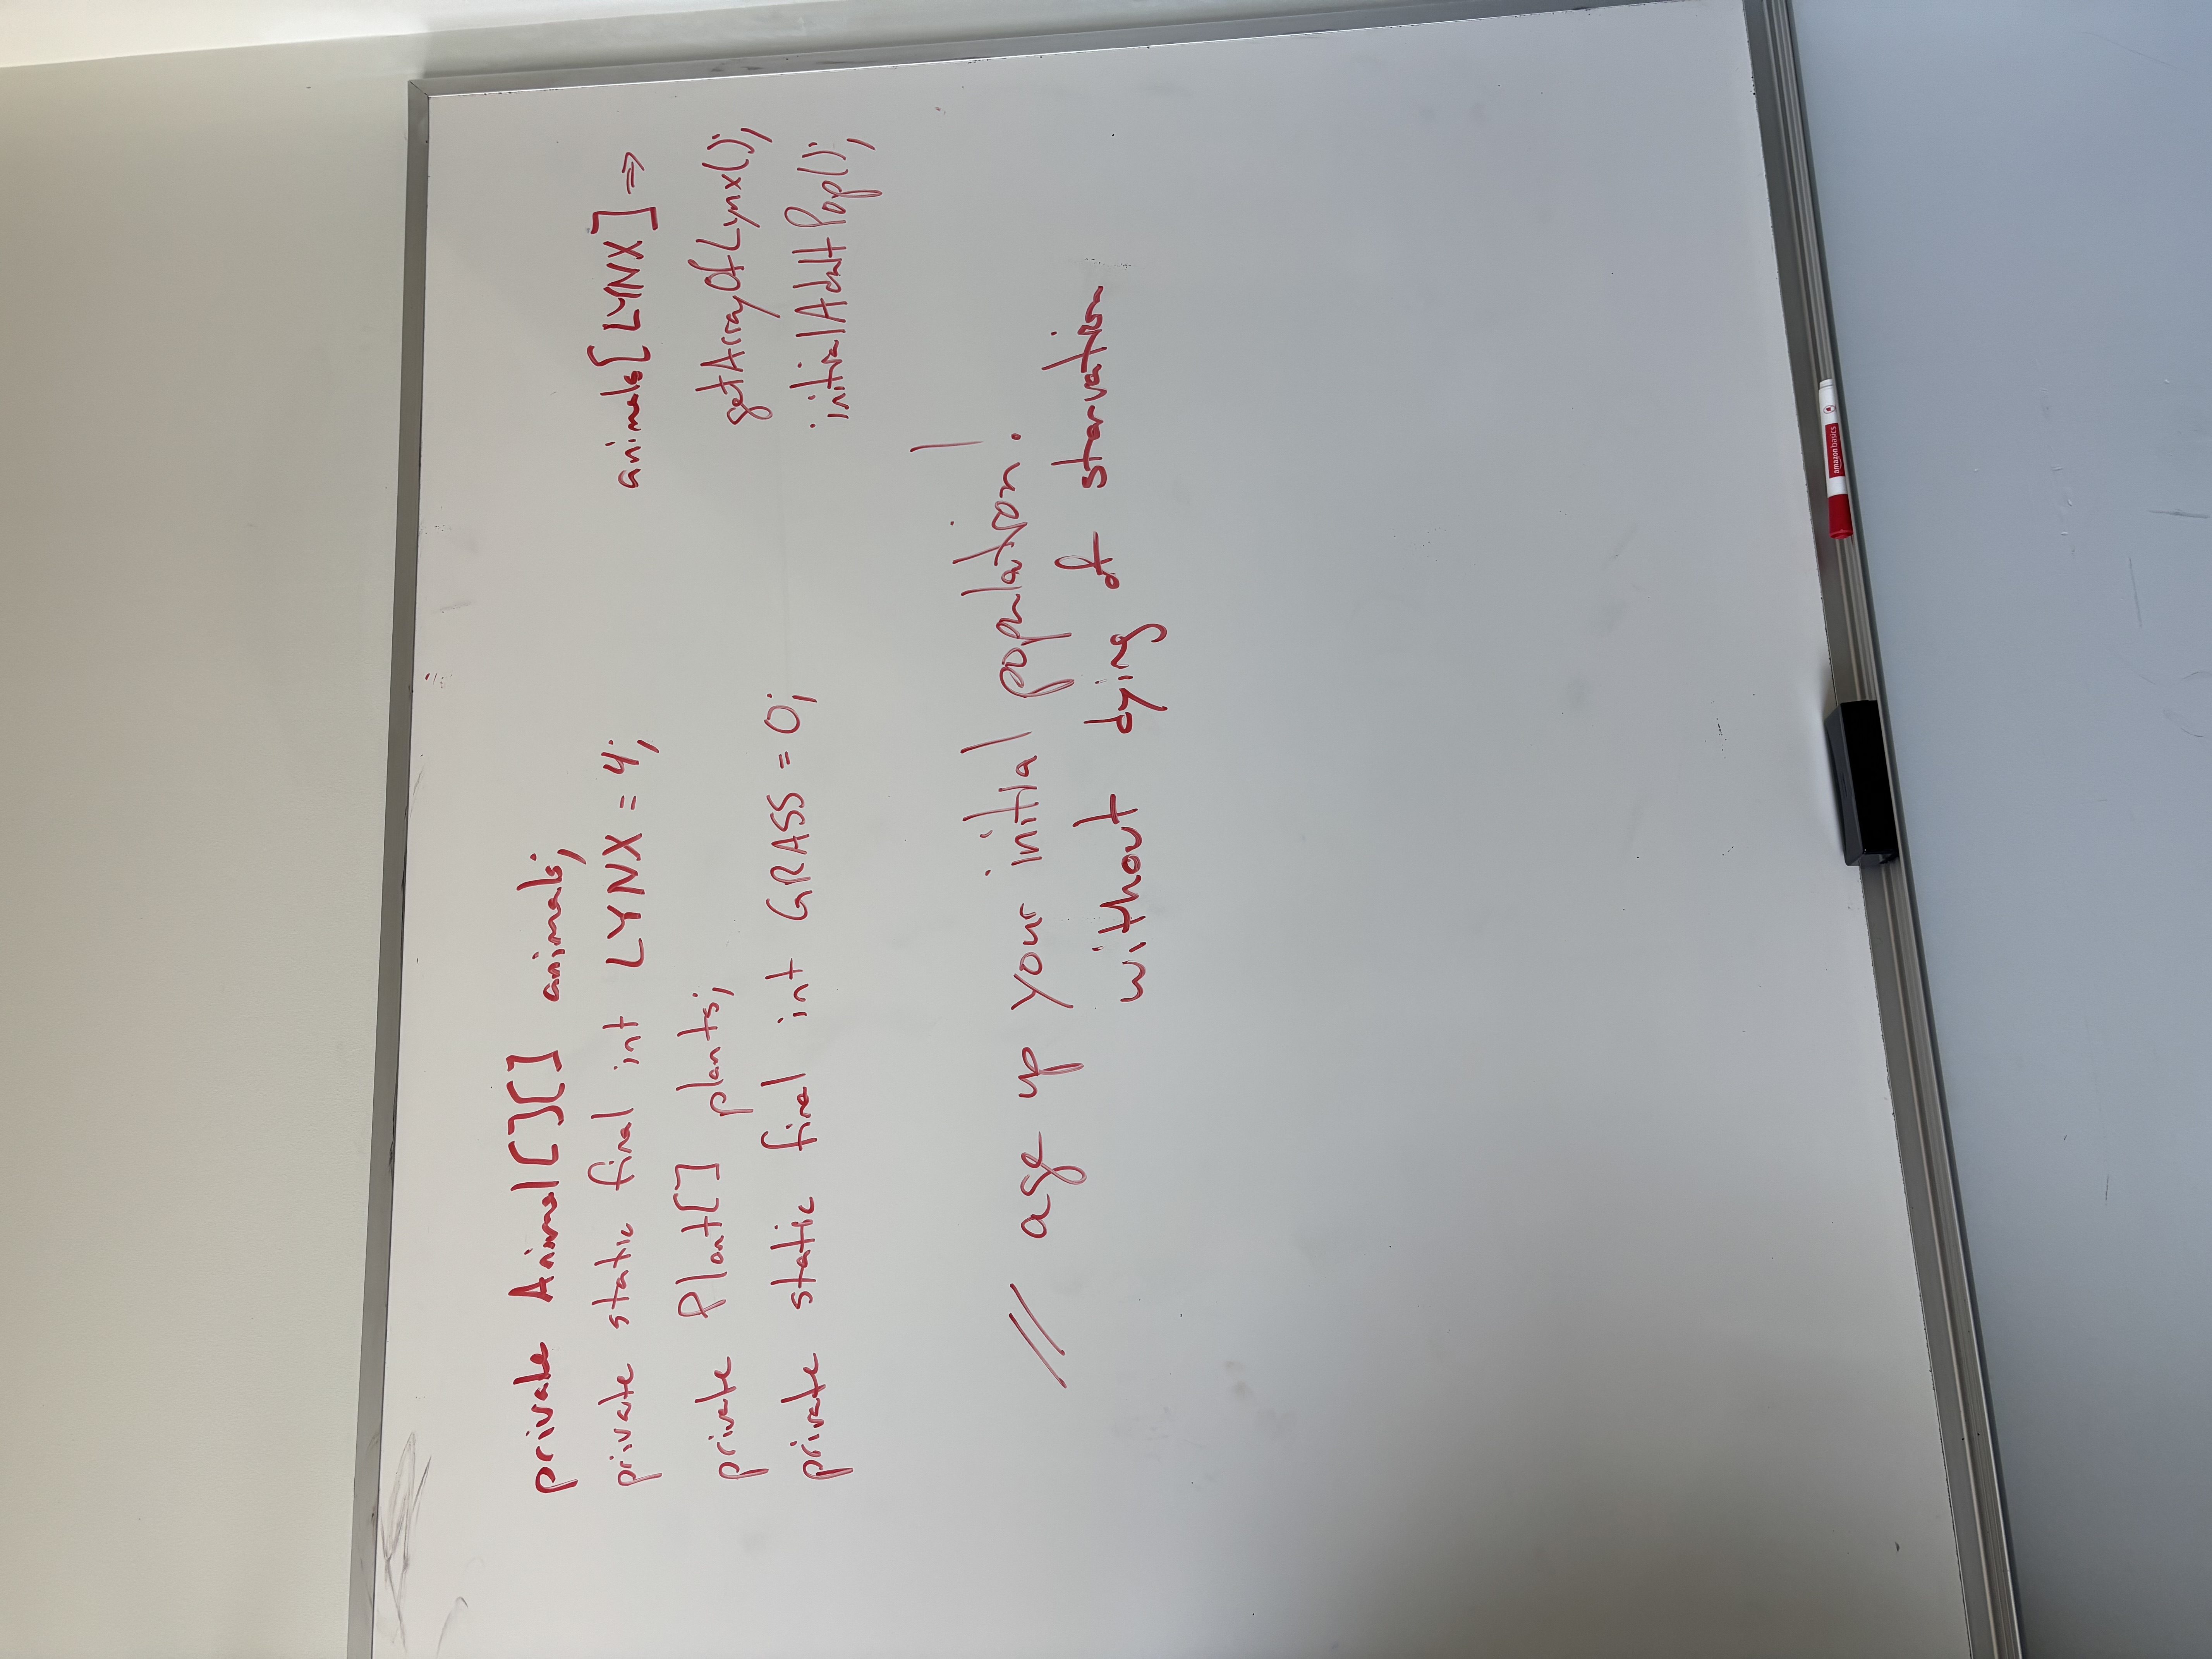 private Animal[][] animals;
private static final int LYNX = 4;
private Plant[] plants;
private static final int GRASS = 0;
animals[LYNX] ⇒
getArrayOfLynx();
initialAdultPop();
// age up your initial population!
without dying of starvation
amazon basics